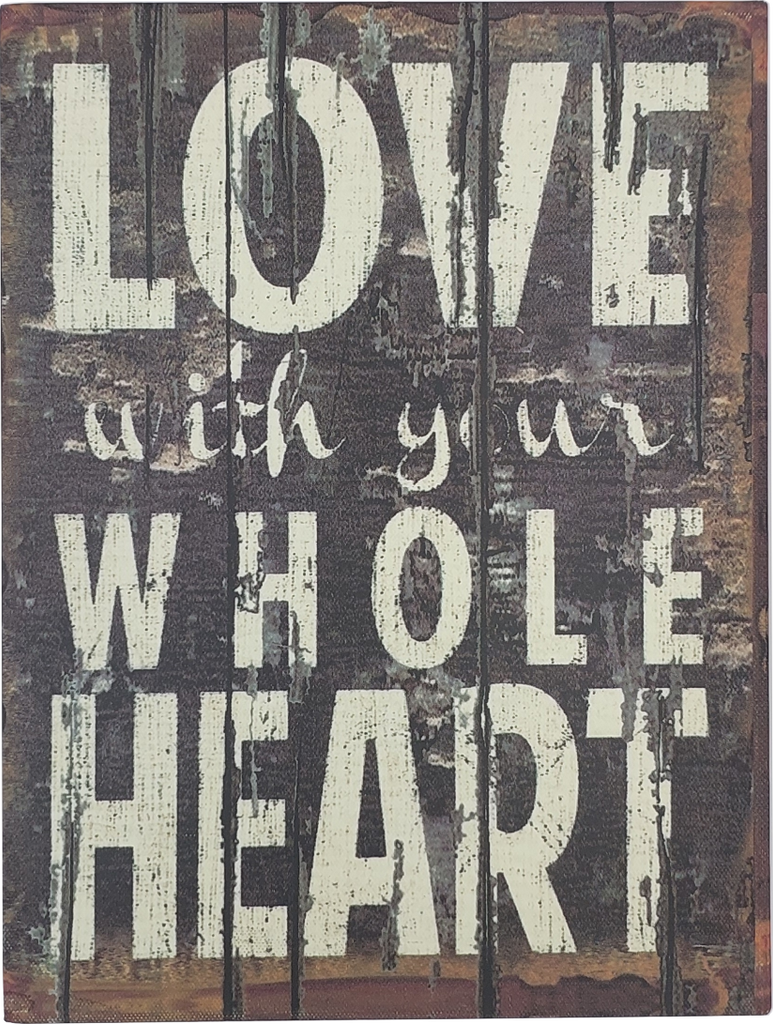 LOVE
with your
WHOLE
HEART